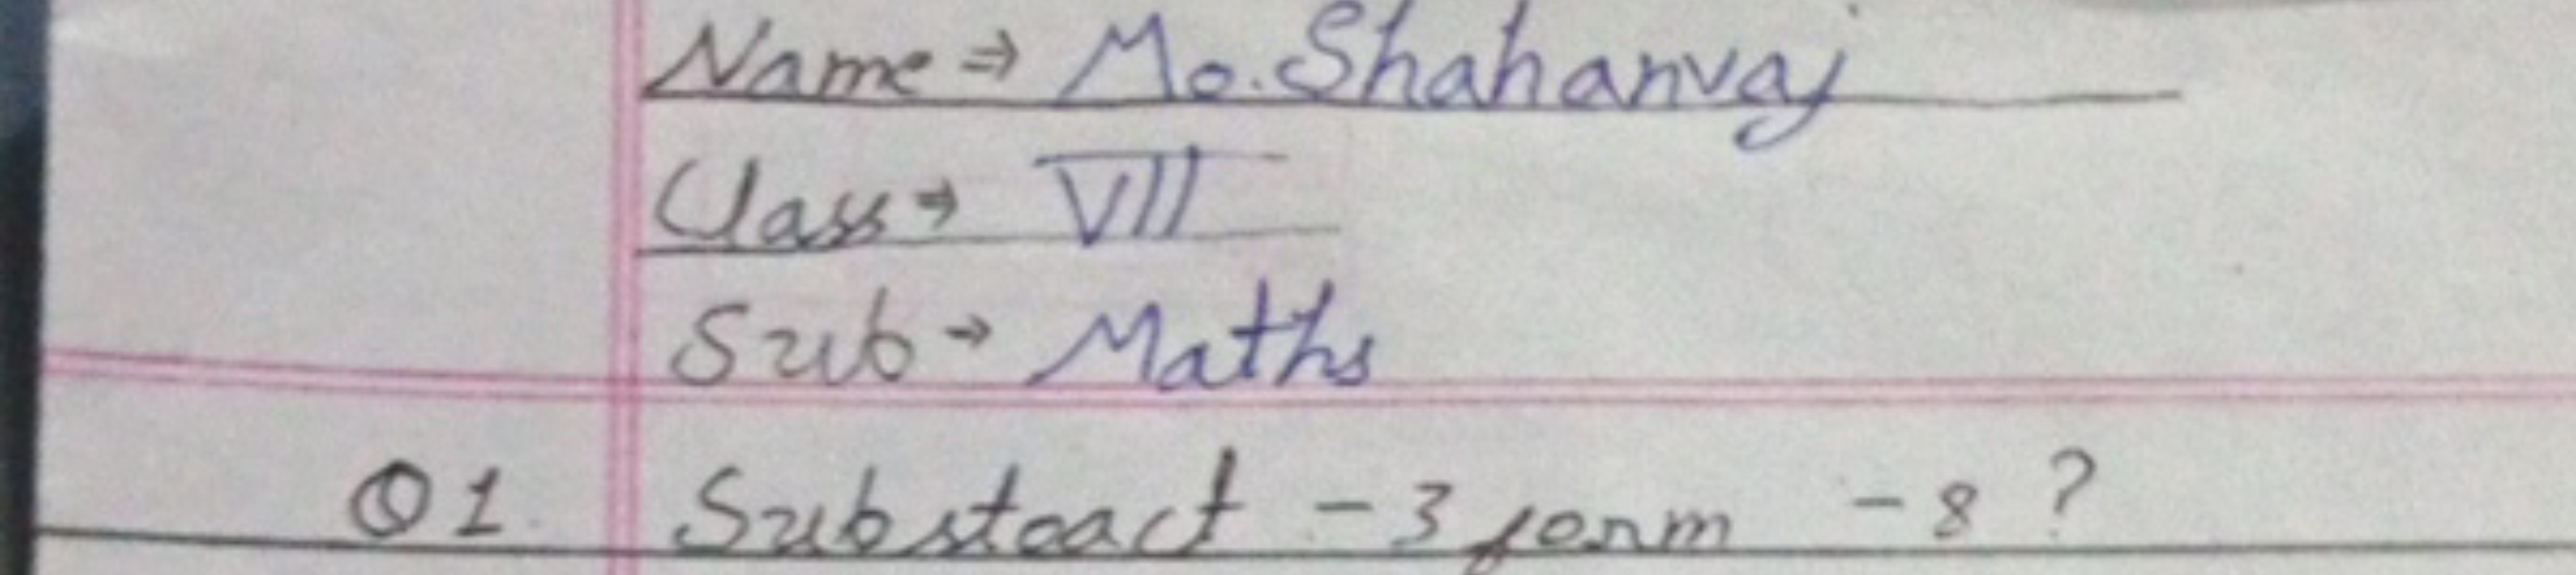 Name ⇒ Mo. Shahanvaj
Class ⇒ VII
Sub → Maths
Q1. Substract -3 form -8 ?